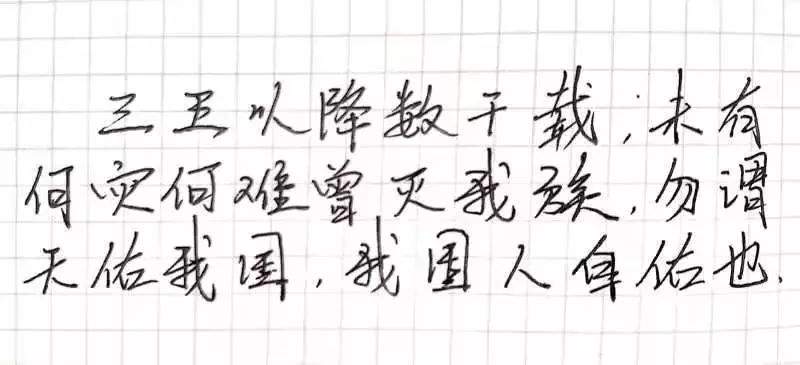 三五以降数千载，未有
何灾何难曾灭我族，勿谓
天佑我国，我国人自佑也.